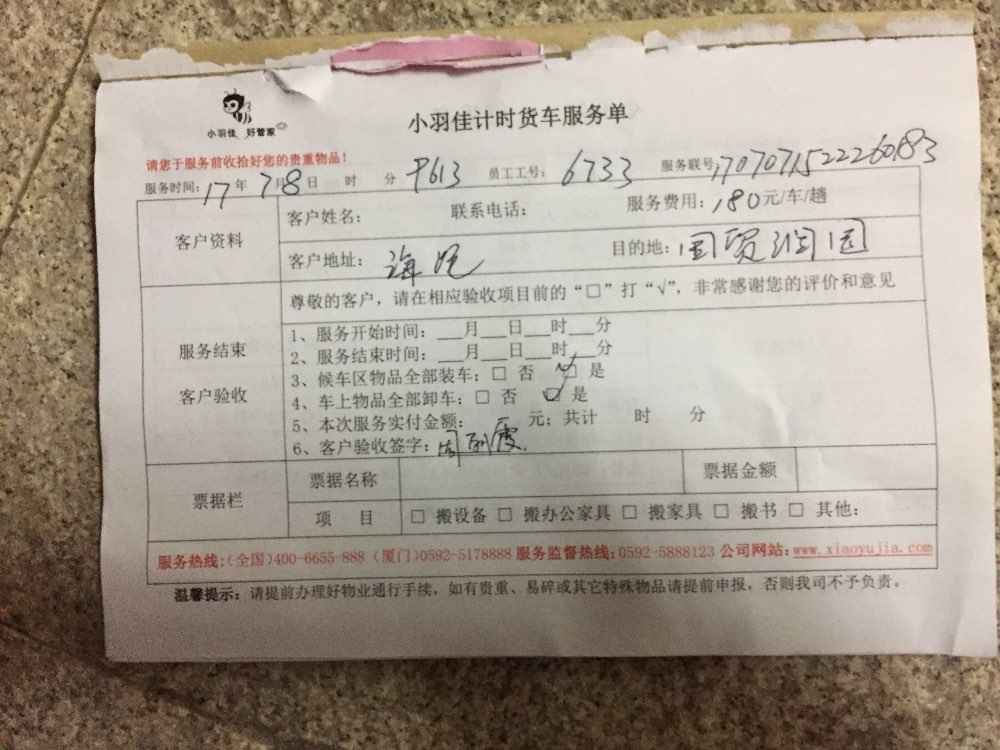 小羽佳 好管家
小羽佳计时货车服务单
请您于服务前收拾好您的贵重物品！
服务时间：17年7月8日 时 分 员工工号：6733 服务联号：
客户资料
客户姓名： 联系电话： 服务费用：180元/车/趟
客户地址： 目的地：国贸润园
服务结束
客户验收
尊敬的客户，请在相应验收项目前的“□”打“√”，非常感谢您的评价和意见
1、服务开始时间：___月___日___时___分
2、服务结束时间：___月___日___时___分
3、候车区物品全部装车：□ 否 □ 是
4、车上物品全部卸车：□ 否 □ 是
5、本次服务实付金额： 元；共计 时 分
6、客户验收签字：周丽霞
票据栏
票据名称 票据金额
项 目 □ 搬设备 □ 搬办公家具 □ 搬家具 □ 搬书 □ 其他：
服务热线：（全国）400-6655-888（厦门）0592-5178888 服务监督热线：0592-5888123 公司网站：www.xiaoyujia.com
温馨提示：请提前办理好物业通行手续，如有贵重、易碎或其它特殊物品请提前申报，否则我司不予负责。